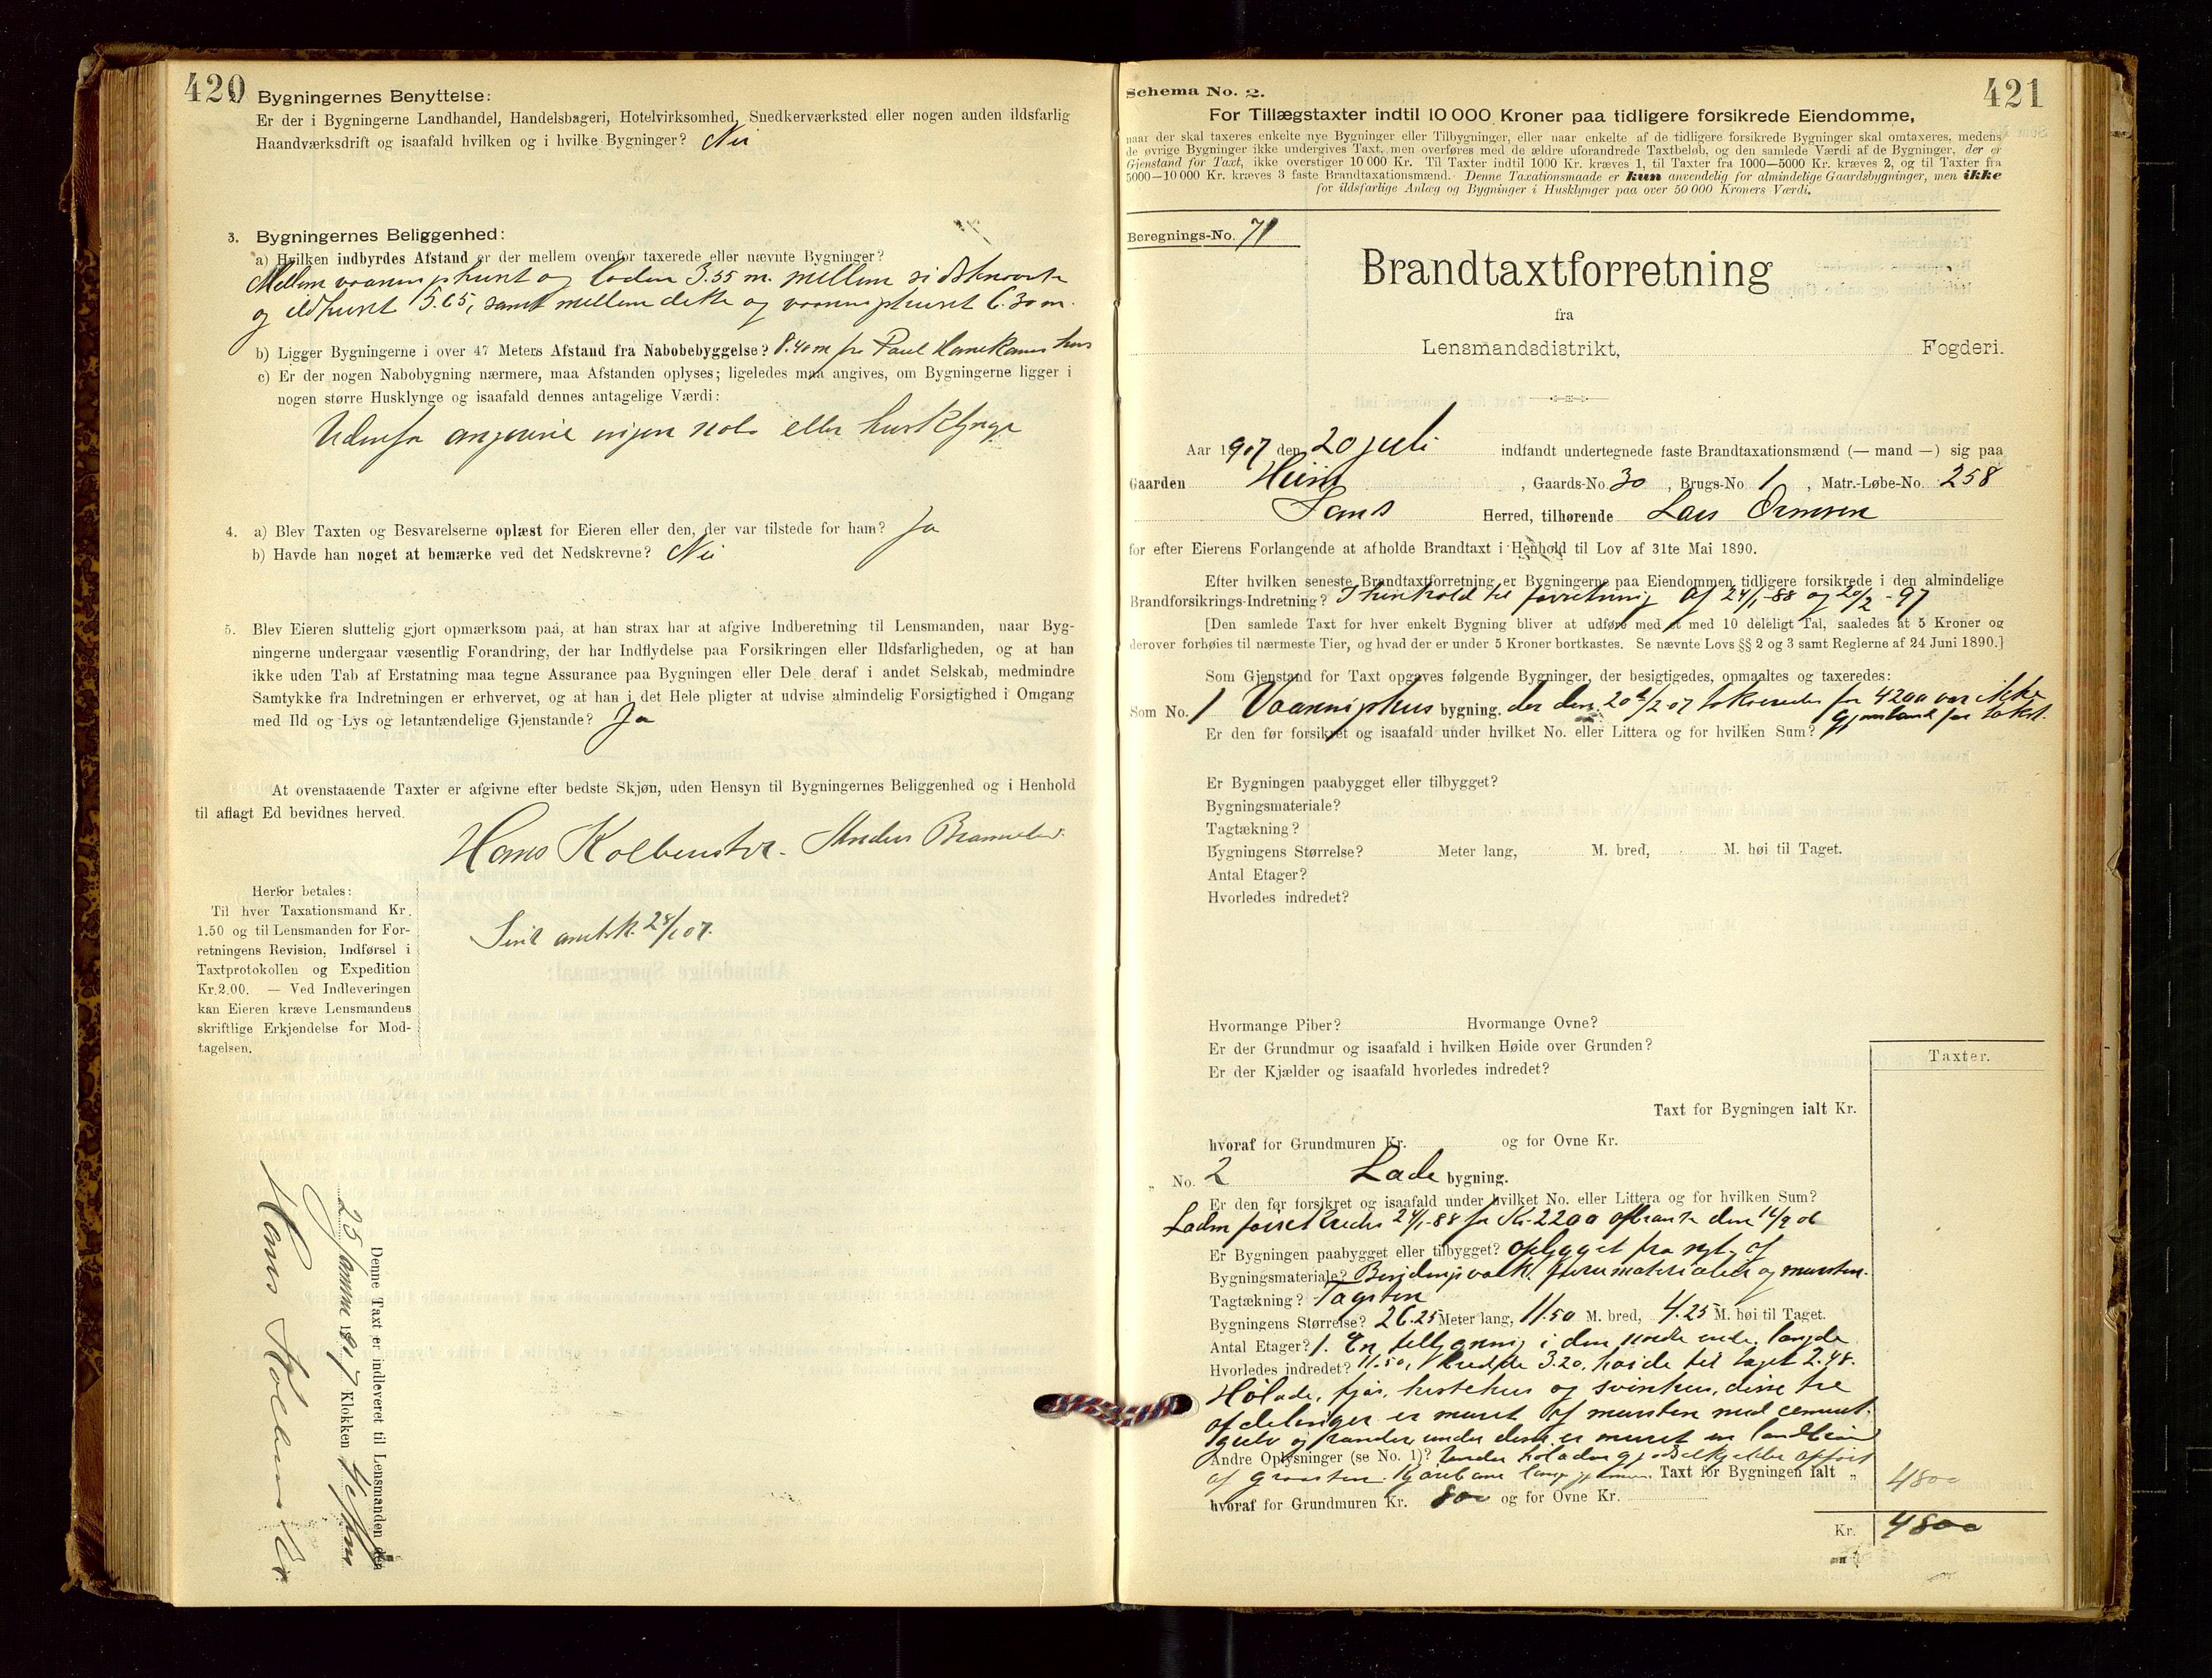 420
Bygningernes Benyttelse:
Er der i Bygningerne Landhandel, Handelsbageri, Hotelvirksomhed, Snedkerværksted eller nogen anden ildsfarlig
Haandværksdrift og isaafald hvilken og i hvilke Bygninger? Nei
3. Bygningernes Beliggenhed:
a) Hvilken indbyrdes Afstand er der mellem ovenfor taxerede eller nævnte Bygninger?
Mellem vaaningshuset og laden 3.55 m. mellem sidstnævnte
og ildhuset 15.65, samt mellem dette og vaaningshuset 6.30 m.
b) Ligger Bygningerne i over 47 Meters Afstand fra Nabobebyggelse? 8.40 m fra Paul Hanekams hus
c) Er der nogen Nabobygning nærmere, maa Afstanden oplyses; ligeledes maa angives, om Bygningerne ligger i
nogen større Husklynge og isaafald dennes antagelige Værdi:
Udenfor angivne ingen nabo eller husklynge
4. a) Blev Taxten og Besvarelserne oplæst for Eieren eller den, der var tilstede for ham? Ja
b) Havde han noget at bemærke ved det Nedskrevne? Nei
5. Blev Eieren sluttelig gjort opmærksom paa, at han strax har at afgive Indberetning til Lensmanden, naar Byg-
ningerne undergaar væsentlig Forandring, der har Indflydelse paa Forsikringen eller Ildsfarligheden, og at han
ikke uden Tab af Erstatning maa tegne Assurance paa Bygningen eller Dele deraf i andet Selskab, medmindre
Samtykke fra Indretningen er erhvervet, og at han i det Hele pligter at udvise almindelig Forsigtighed i Omgang
med Ild og Lys og letantændelige Gjenstande? Ja
At ovenstaaende Taxter er afgivne efter bedste Skjøn, uden Hensyn til Bygningernes Beliggenhed og i Henhold
til aflagt Ed bevidnes herved.
Hans Kolbenstvedt.
Herfor betales:
Til hver Taxationsmand Kr.
1.50 og til Lensmanden for For-
retningens Revision, Indførsel i
Taxtprotokollen og Expedition
Kr. 2.00. — Ved Indleveringen
kan Eieren kræve Lensmandens
skriftlige Erkjendelse for Mod-
tagelsen.
Denne Taxt er indleveret til Lensmanden den
25 1907 Klokken
421
Schema No. 2.
For Tillægstaxter indtil 10 000 Kroner paa tidligere forsikrede Eiendomme,
naar der skal taxeres enkelte nye Bygninger eller Tilbygninger, eller naar enkelte af de tidligere forsikrede Bygninger skal omtaxeres, medens
de øvrige Bygninger ikke undergives Taxt, men overføres med de ældre uforandrede Taxtbeløb, og den samlede Værdi af de Bygninger, der er
Gjenstand for Taxt, ikke overstiger 10 000 Kr. Til Taxter indtil 1000 Kr. kræves 1, til Taxter fra 1000—5000 Kr. kræves 2, og til Taxter fra
5000—10 000 Kr. kræves 3 faste Brandtaxationsmænd. Denne Taxationsmaade er kun anvendelig for almindelige Gaardsbygninger, men ikke
for ildsfarlige Anlæg og Bygninger i Husklynger paa over 50 000 Kroners Værdi.
Beregnings-No. 71
Brandtaxtforretning
fra
Lensmandsdistrikt, Fogderi.
Aar 1907 den 20 juli indfandt undertegnede faste Brandtaxationsmænd (— mand —) sig paa
Gaarden , Gaards-No. 30 , Brugs-No 1 , Matr.-Løbe-No. 258
Herred, tilhørende Lars Ormsen
for efter Eierens Forlangende at afholde Brandtaxt i Henhold til Lov af 31te Mai 1890.
Efter hvilken seneste Brandtaxtforretning er Bygningerne paa Eiendommen tidligere forsikrede i den almindelige
Brandforsikrings-Indretning? I henhold til forretning af 24/1-88 og 20/2-97
[Den samlede Taxt for hver enkelt Bygning bliver at udføre med et med 10 deleligt Tal, saaledes at 5 Kroner og
derover forhøies til nærmeste Tier, og hvad der er under 5 Kroner bortkastes. Se nævnte Lovs §§ 2 og 3 samt Reglerne af 24 Juni 1890.]
Som Gjenstand for Taxt opgaves følgende Bygninger, der besigtigedes, opmaaltes og taxeredes:
Som No. 1 Vaaningshus bygning. der den for 4200 var ikke
gjenstand for takst.
Er den før forsikret og isaafald under hvilket No. eller Littera og for hvilken Sum?
Er Bygningen paabygget eller tilbygget?
Bygningsmateriale?
Tagtækning?
Bygningens Størrelse? Meter lang, M. bred, M. høi til Taget.
Antal Etager?
Hvorledes indredet?
Hvormange Piber? Hvormange Ovne?
Er der Grundmur og isaafald i hvilken Høide over Grunden?
Er der Kjælder og isaafald hvorledes indredet?
Taxter.
Taxt for Bygningen ialt Kr.
hvoraf for Grundmuren Kr. og for Ovne Kr.
„ No. 2 Lade bygning.
Er den før forsikret og isaafald under hvilket No. eller Littera og for hvilken Sum?
Laden 24/1-88 for Kr. 2200 afbrandte den
Er Bygningen paabygget eller tilbygget? opbygget fra nyt af
Bygningsmateriale? Bindingsværk. furumaterialer og mursten.
Tagtækning? Tagsten
Bygningens Størrelse? 26.25 Meter lang, 11.50 M. bred, 4.25 M. høi til Taget.
Antal Etager? 1. En tilbygning i den nordre ende, længde
Hvorledes indredet? 11.50, bredde 3.20, høide til taget 2.48.
Hølade, fjøs, hestehus og svinehus, disse tre
afdelinger er muret af mursten med cement
gulv og under dem er muret en landkum
Andre Oplysninger (se No. 1)? Under høladen gjødselkjelder opført
af graasten. Taxt for Bygningen ialt „ 4800
hvoraf for Grundmuren Kr. 800 og for Ovne Kr.
Kr. 4800